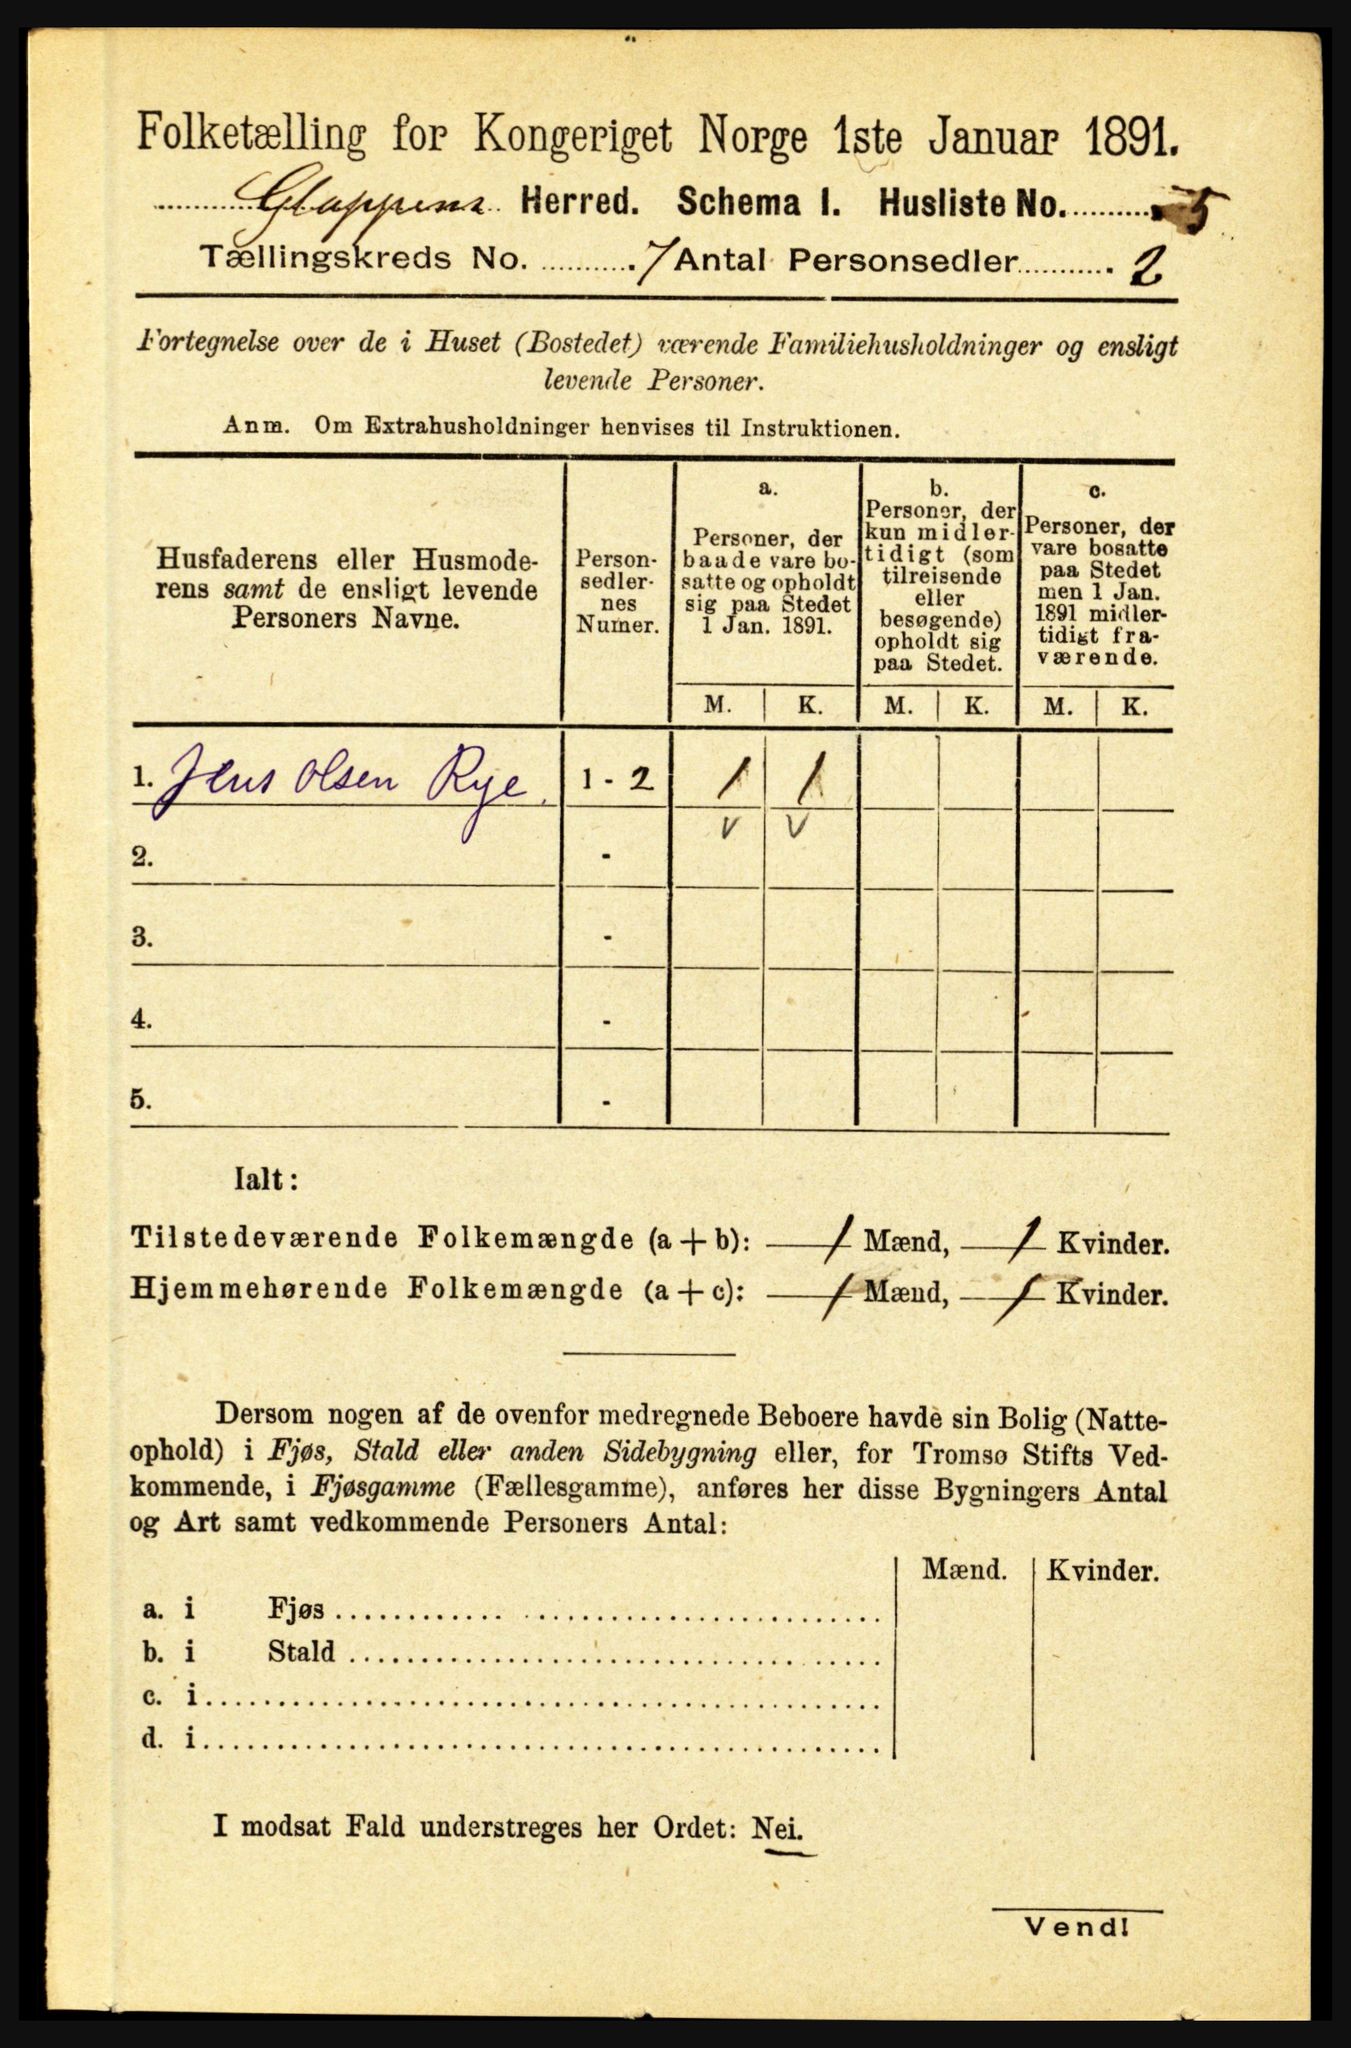 Folketælling for Kongeriget Norge 1ste Januar 1891.
Gloppens Herred. Schema I. Husliste No. 5
Tællingskreds No. 7 Antal Personsedler 2
Fortegnelse over de i Huset (Bostedet) værende Familiehusholdninger og ensligt
levende Personer.
Anm. Om Extrahusholdninger henvises til Instruktionen.
Husfaderens eller Husmode-
rens samt de ensligt levende
Personers Navne.
Person-
sedler-
nes
Numer.
a.
Personer, der
baade vare bo-
satte og opholdt
sig paa Stedet
1 Jan. 1891.
b.
Personer, der
kun midler-
tidigt (som
tilreisende
eller
besøgende)
opholdt sig
paa Stedet.
c.
Personer, der
vare bosatte
paa Stedet
men 1 Jan.
1891 midler-
tidigt fra-
værende.
M. K. M. K. M. K.
1. Jens Olsen Rye. 1 - 2 1 1
v v
2. -
3. -
4. -
5. -
Ialt:
Tilstedeværende Folkemængde (a + b): 1 Mænd, 1 Kvinder.
Hjemmehørende Folkemængde (a + c): 1 Mænd, 1 Kvinder.
Dersom nogen af de ovenfor medregnede Beboere havde sin Bolig (Natte-
ophold) i Fjøs, Stald eller anden Sidebygning eller, for Tromsø Stifts Ved-
kommende, i Fjøsgamme (Fællesgamme), anføres her disse Bygningers Antal
og Art samt vedkommende Personers Antal:
Mænd. Kvinder.
a. i Fjøs
b. i Stald
c. i
d. i
I modsat Fald understreges her Ordet: Nei.
Vend!